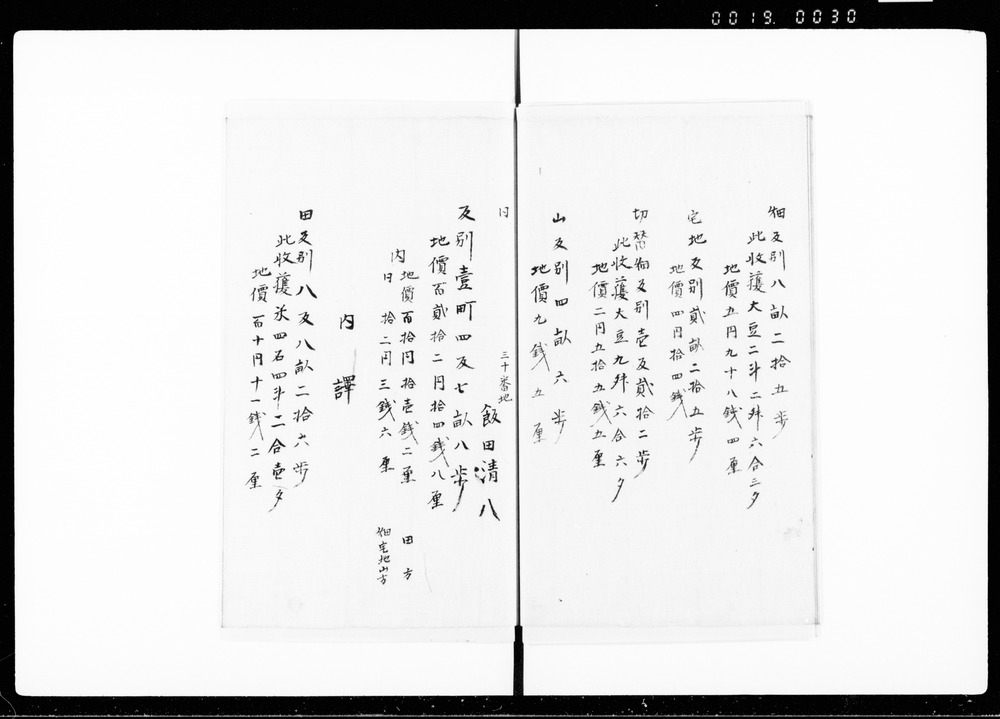 0019. 0030
畑反別八畝二拾五歩
此收穫大豆二斗二舛六合三夕
地價五円九十八銭四厘
宅地反別貳畝二拾五歩
地價四円拾四銭
切替畑反別壱反貳拾二歩
此收穫大豆九舛六合六夕
地價二円五拾五銭五厘
山反別四畝六歩
地價九銭五厘
三十番地
飯田清八
反別壹町四反七畝八歩
地價百貳拾二円拾四銭八厘
内
地價百拾円拾壱銭二厘 田方
拾二円三銭六厘 畑宅地山方
内譯
田反別八反八畝二拾六歩
此收穫米四石四斗二合壱夕
地價百十円十一銭二厘